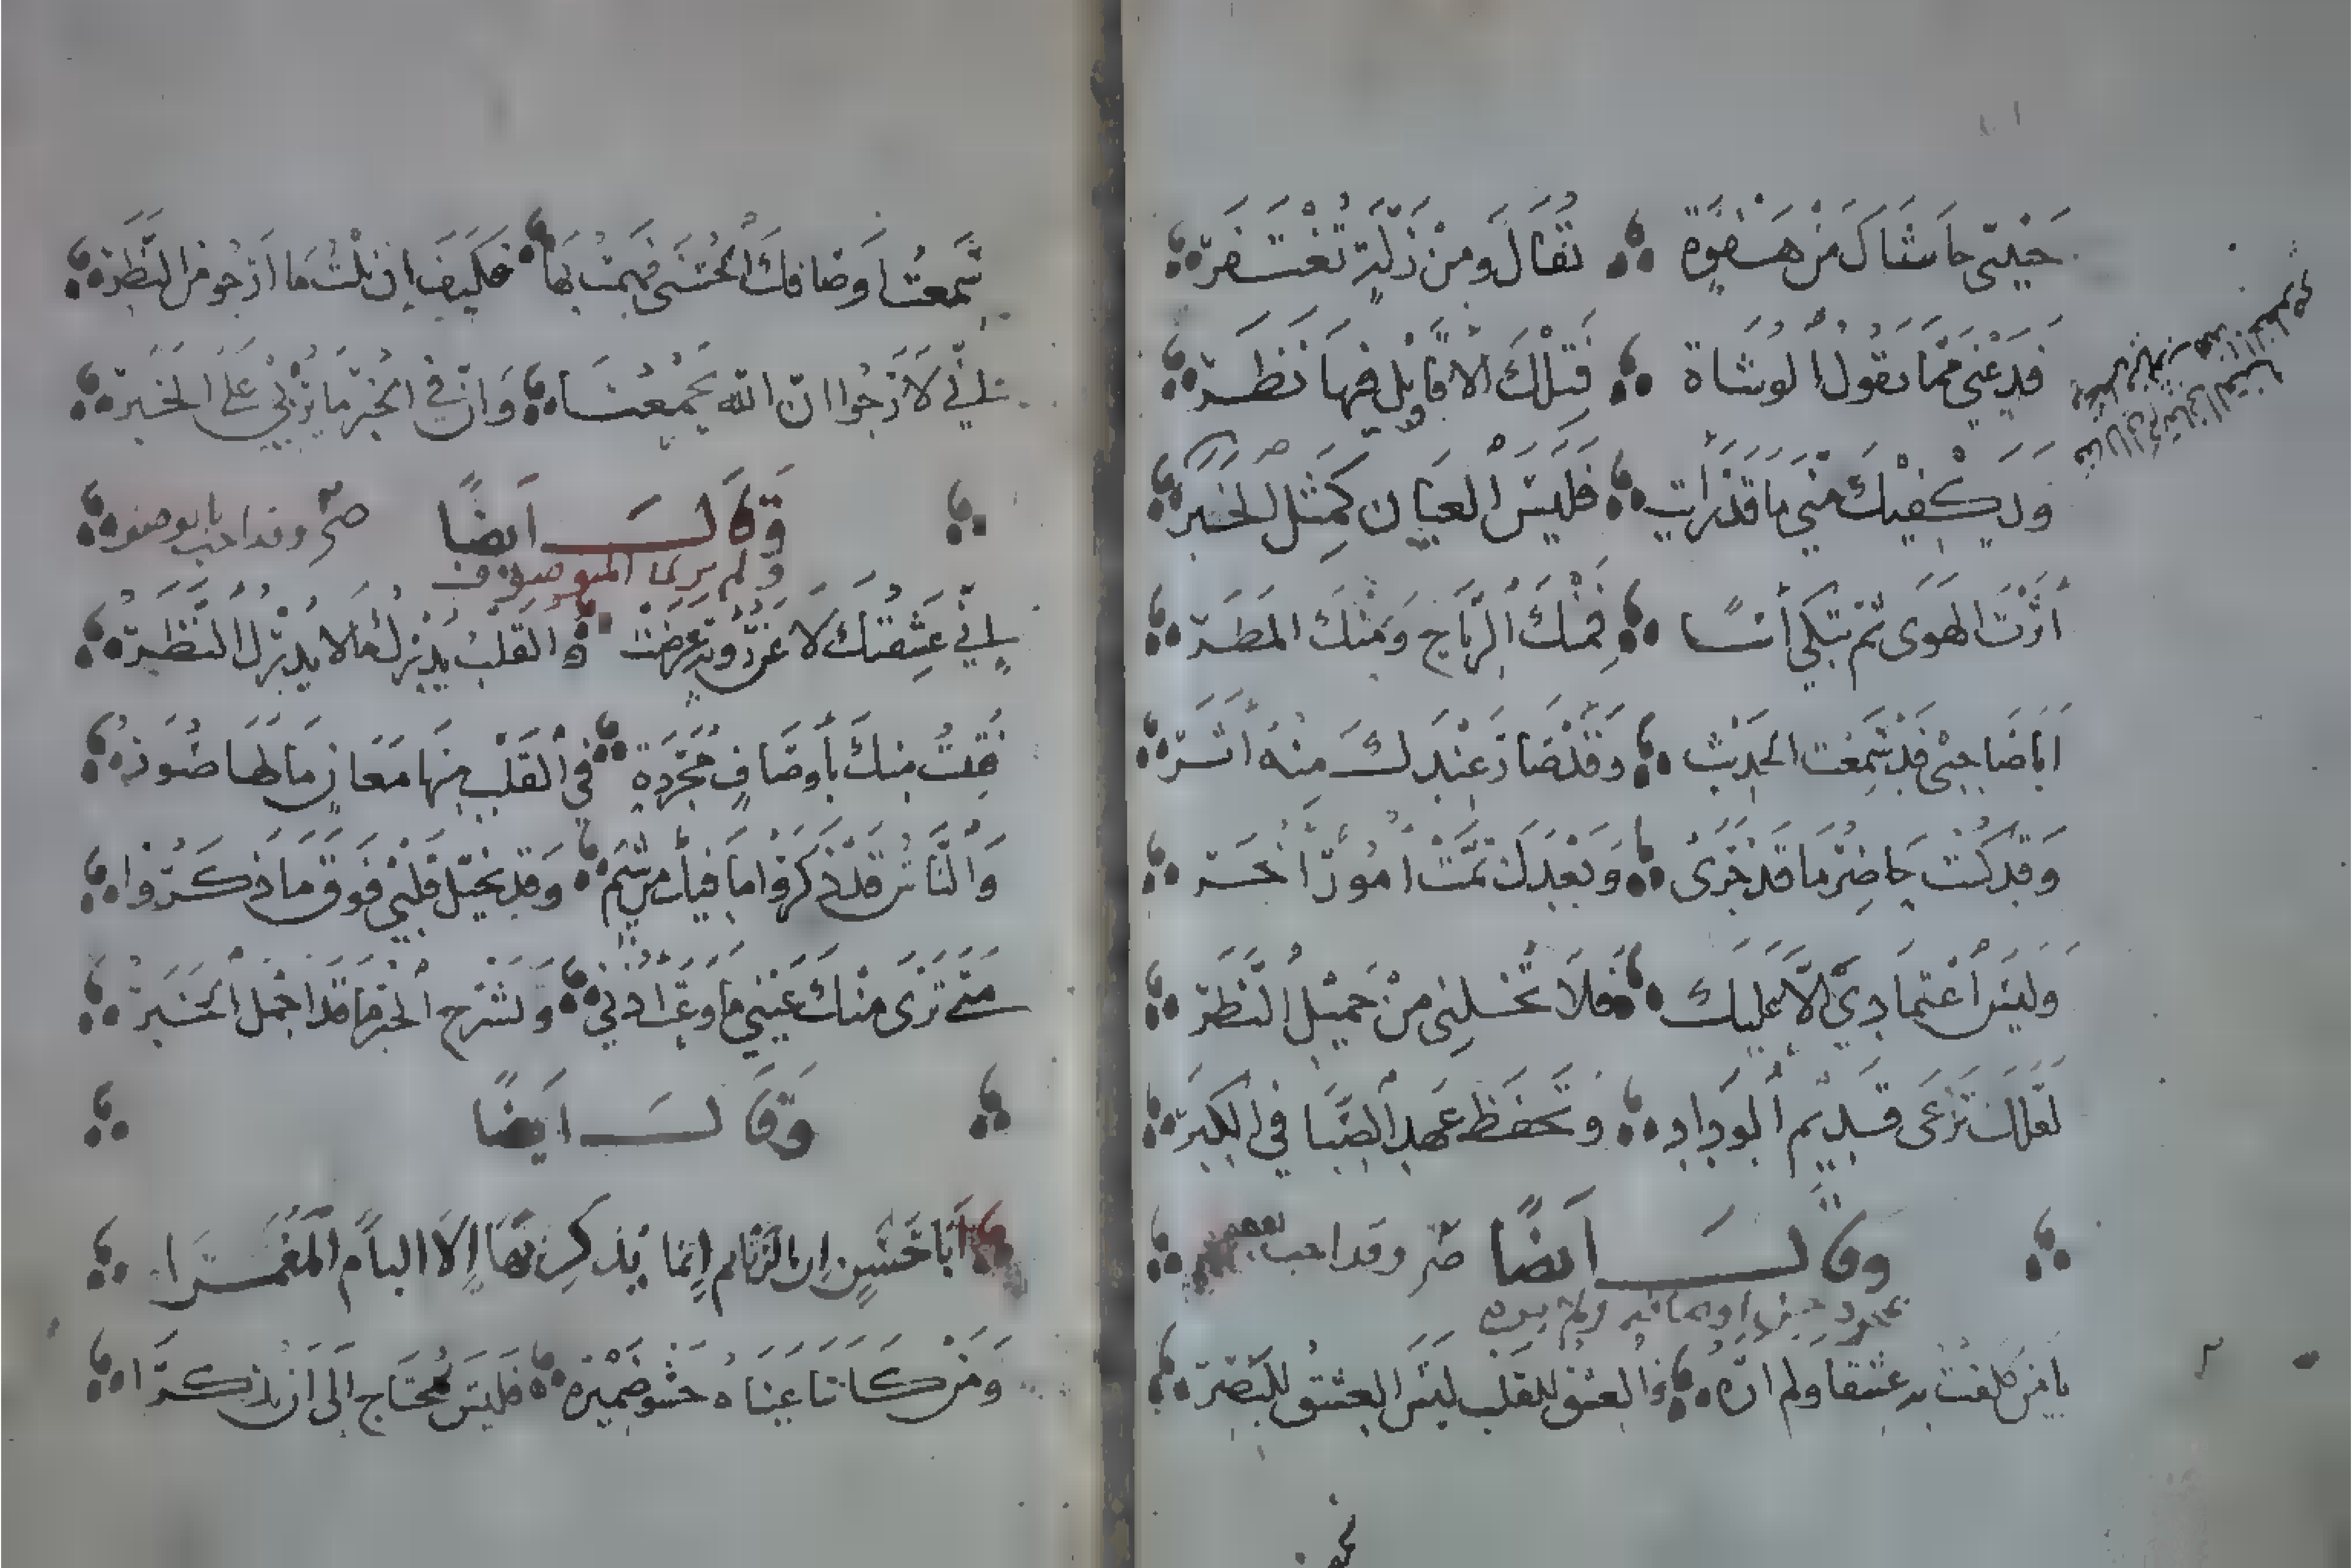 حبيبي حاشاك من هفوة تقال ومن زلة تغتفر
فدعني مما يقول الوشاة فتلك الاقاويل فيها نظر
ويكفيك مني ما قد رأيت فليس العيان كمثل الخبر
أثرت الهوى ثم تبكي أسا فمنك الرياح ومنك المطر
ايا صاحبي قد سمعت الحديث وقد صار عندك منه أثر
وقد كنت حاضر ما قد جرى وبعدك تمت أمور أخر
وليس اعتمادي إلا عليك فلا تخلني من جميل النظر
لعلك ترعى قديم الوداد وتحفظ عهد الصبا في الكبر
وقال ايضا وقد احب
ولم يره
يا من كلفت به عشقا ولم اره والعشق للقلب ليس العشق للبصر
سمعت اوصافك الحسنى فهمت بها فكيف إن نلت ما ارجو من النظر
إني لارجوا ان الله يجمعنا وان في الخبر ما يربي على الخبر
وقال ايضا وقد احب بالوصف
ولم ير الموصوف
إني عشقتك لا عن رؤية عرضت والقلب يدرك ما لا يدرك النظر
فتنت منك بأوصاف مجردة في القلب منها معان ما لها صور
والناس قد ذكروا ما فيك من شيم وقد تخيل قلبي فوق ما ذكروا
متى ترى منك عيني ما وعى أذني وتشرح الخبر ما قد اجمل الخبر
وقال ايضا
أبا حسن إن الرتائم إنما يذكرن بها إلا البام المغمرا
ومن كانتا عيناه حشو ضميره فليس محتاج الى أن يذكرا